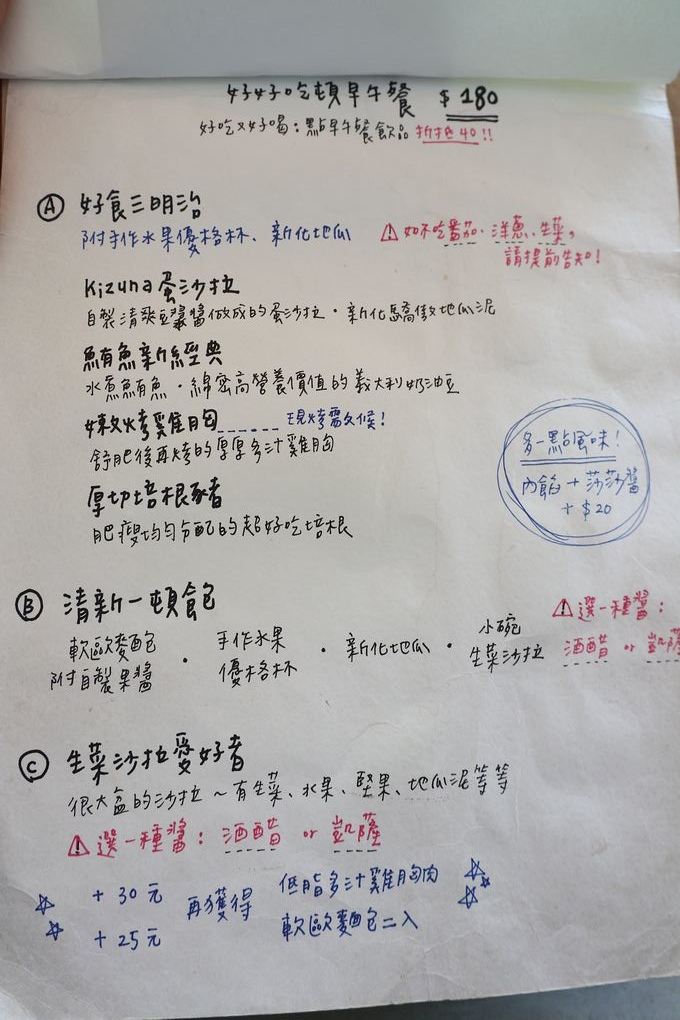 好好吃頓早午餐 $180
好吃又好喝：點早午餐飲品 折抵40!!
Ⓐ 好食三明治
附手作水果優格杯、新化地瓜
⚠ 如不吃番茄、洋蔥、生菜，
請提前告知！
Kizuna蛋沙拉
自製清爽豆漿醬做成的蛋沙拉・新化驕傲地瓜泥
鮪魚新經典
水煮鮪魚・綿密高營養價值的義大利奶油豆
嫩烤雞胸------現烤需久候！
舒肥後再烤的厚厚多汁雞胸
厚切培根豬
肥瘦均勻分配的超好吃培根
多一點風味！
內餡＋莎莎醬
＋$20
Ⓑ 清新一頓飽
軟歐麥包
附自製果醬
・
手作水果
優格杯
・新化地瓜・
小碗
生菜沙拉
⚠ 選一種醬：
酒醋 or 凱薩
Ⓒ 生菜沙拉愛好者
很大盆的沙拉～有生菜、水果、堅果、地瓜泥等等
⚠ 選一種醬：酒醋 or 凱薩
＋30元
＋25元
再獲得
低脂多汁雞胸肉
軟歐麵包二入